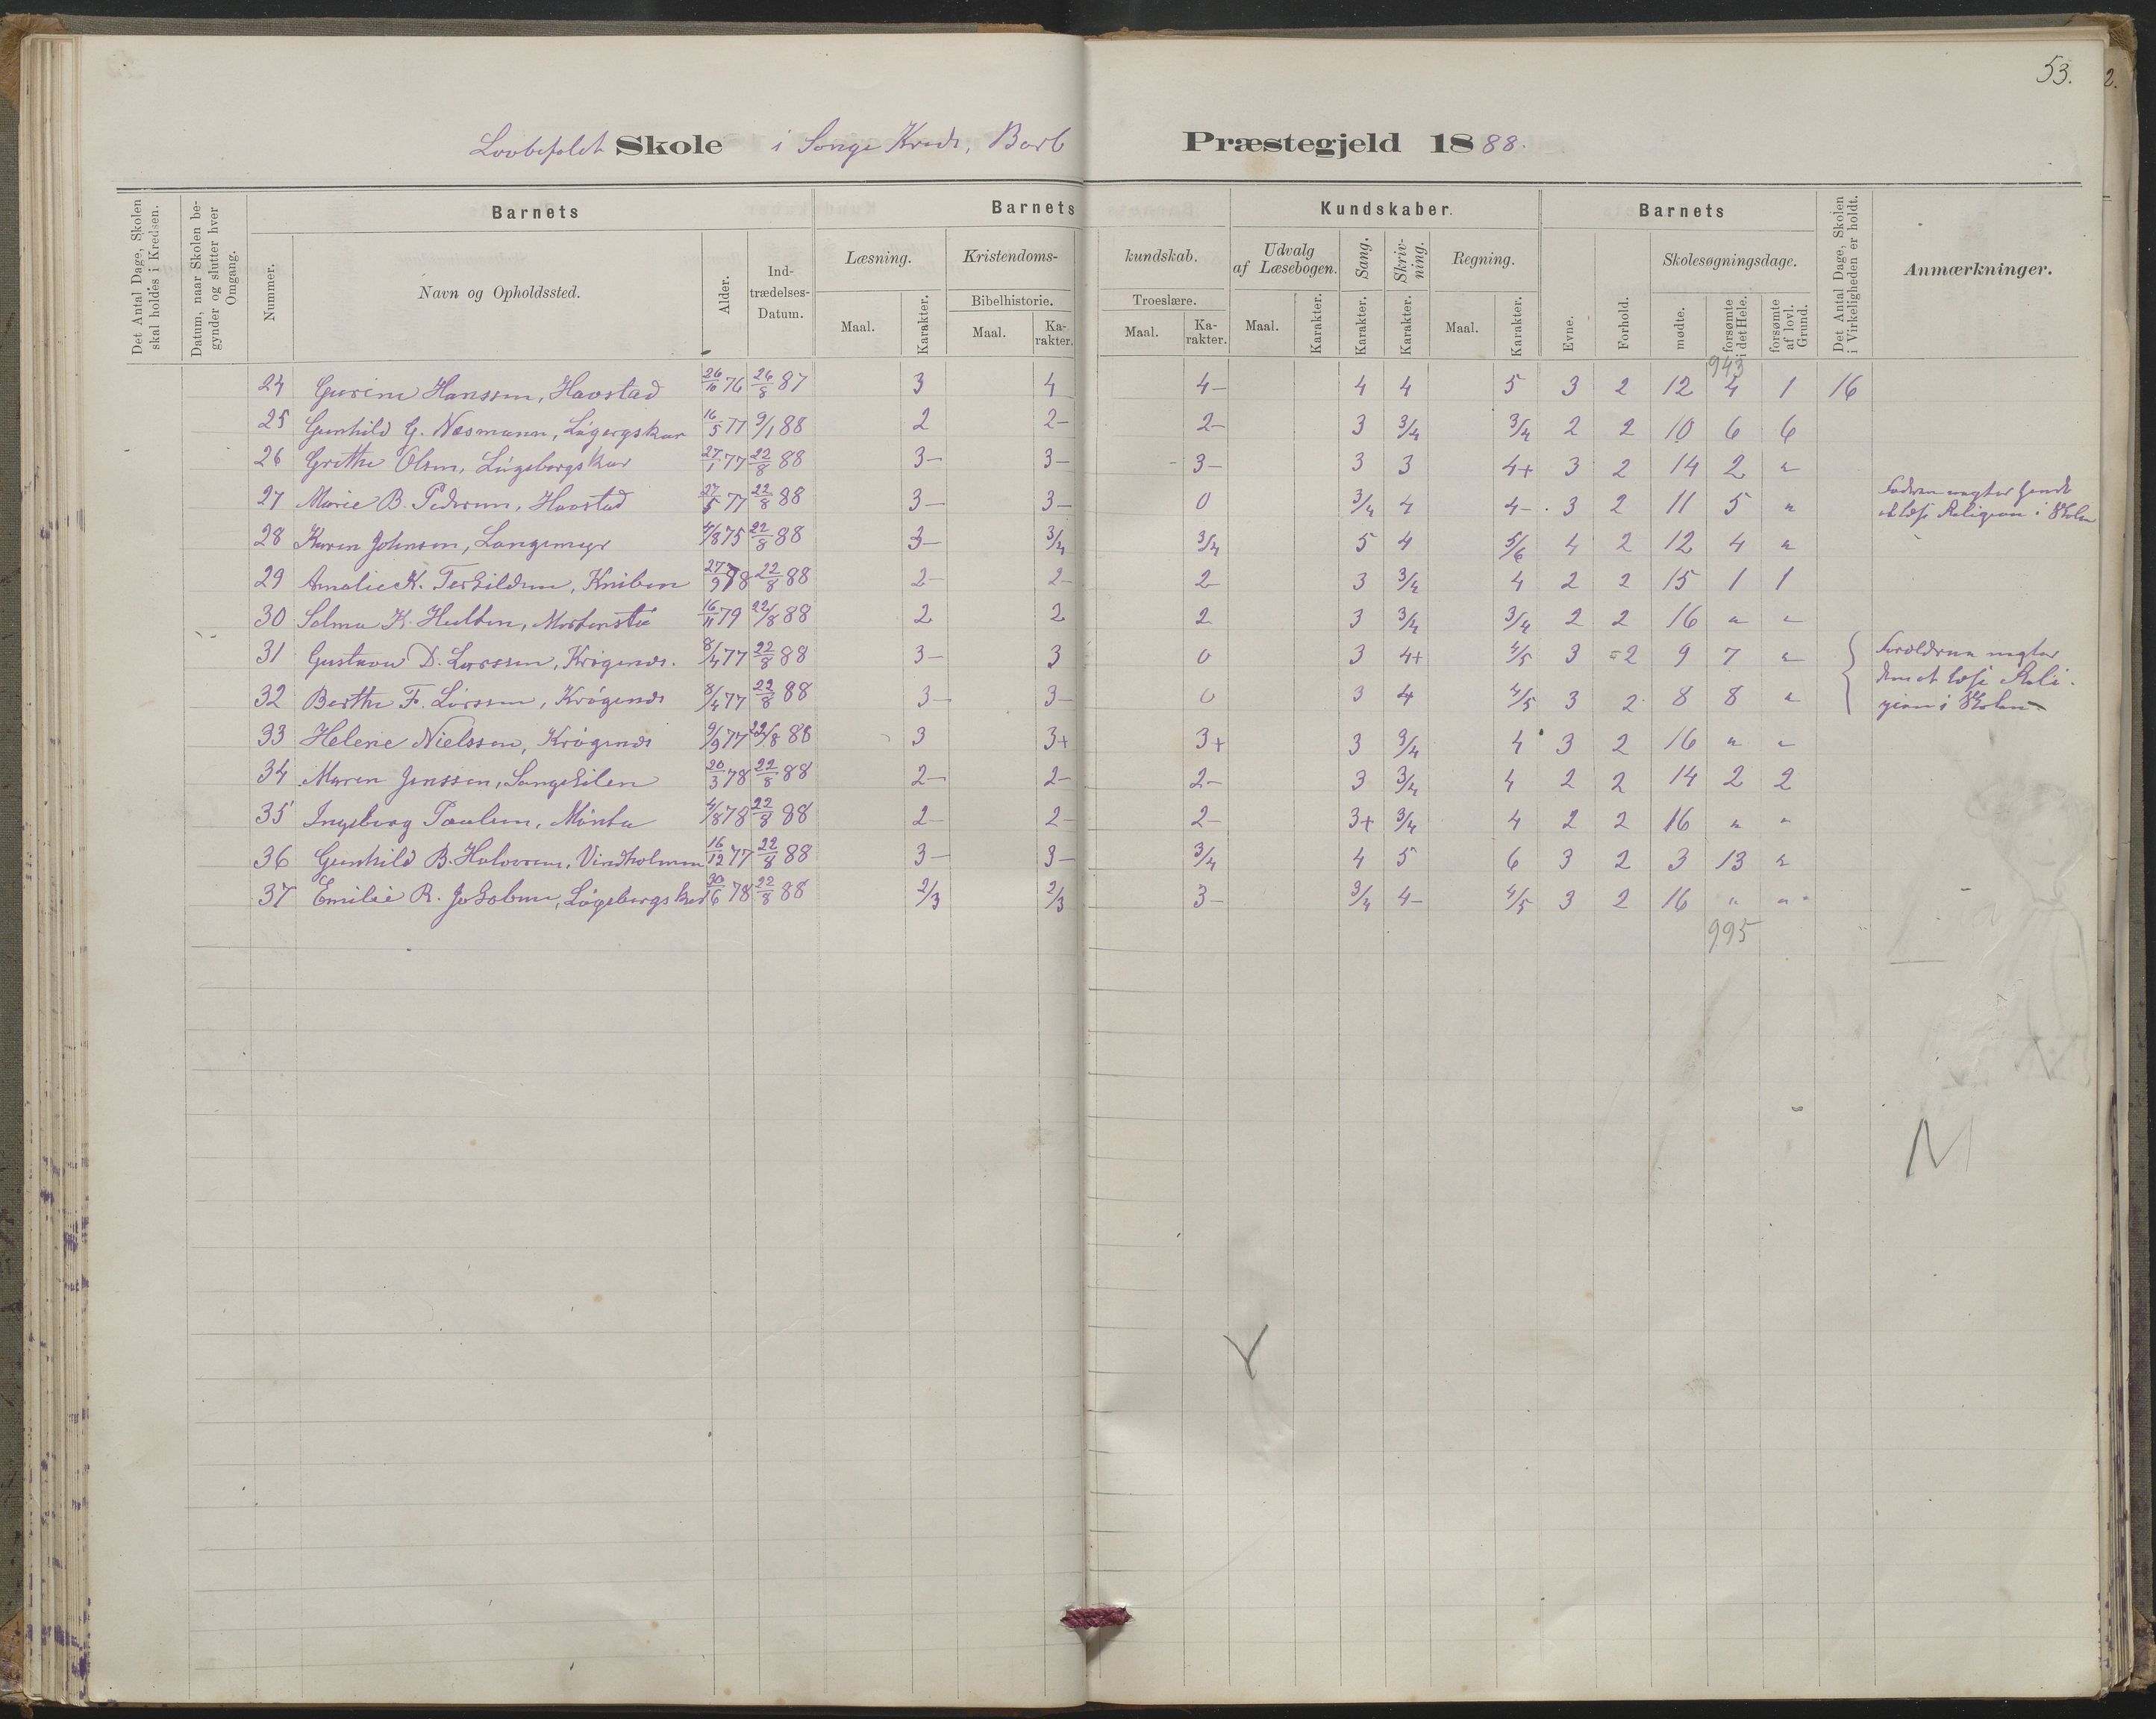 53.
2.
Lovbefalet Skole i Songe Kreds, Barb Præstegjeld 1888.
Det Antal Dage, Skolen skal holdes i Kredsen.
Datum, naar Skolen begynder og slutter hver Omgang.
Barnets
Nummer.
Navn og Opholdssted.
Alder.
Ind-trædelses-Datum.
Barnets Kundskaber.
Læsning.
Maal. Karakter.
Kristendoms-kundskab.
Bibelhistorie.
Maal. Ka-rakter.
Troeslære.
Maal. Ka-rakter.
Udvalg af Læsebogen.
Maal. Karakter.
Sang. Karakter.
Skriv-ning. Karakter.
Regning.
Maal. Karakter.
Barnets
Evne.
Forhold.
Skolesøgningsdage.
mødte.
forsømte i det Hele.
forsømte af lovl. Grund.
Det Antal Dage, Skolen i Virkeligheden er holdt.
Anmærkninger.
943
24 Gurine Hanssen, Havstad 26/10 76 26/8 87 3 4 4- 4 4 5 3 2 12 4 1 16
25 Gunhild G. Næsmann, 16/5 77 9/1 88 2 2- 2- 3 3/4 3/4 2 2 10 6 6
26 Grethe Olsen, 27/1 77 22/8 88 3- 3- 3- 3 3 4+ 3 2 14 2 "
27 Marie B. Pedersen, Havstad 27/5 77 22/8 88 3- 3- 0 3/4 4 4- 3 2 11 5 " Faderen negter hende at læse Religion i Skolen
28 Karen Johnsen, Langemyr 4/8 75 22/8 88 3- 3/4 3/4 5 4 5/6 4 2 12 4 "
29 Amalie K. Terkildsen, Kniben 27/9 78 22/8 88 2- 2- 2- 3 3/4 4 2 2 15 1 1
30 Selma K. Hulten, 16/11 79 22/8 88 2 2 2 3 3/4 3/4 2 2 16 " "
31 Gustava D. Larssen, Krøgenes. 8/4 77 22/8 88 3- 3 0 3 4+ 4/5 3 2 9 7 " Forældrene negter
32 Berthe F. Larssen, Krøgenes 8/4 77 22/8 88 3- 3- 0 3 4 4/5 3 2 8 8 " dem at læse Reli-
gion i Skolen
33 Helene Nielssen, Krøgenes 9/9 77 22/8 88 3 3+ 3+ 3 3/4 4 3 2 16 " "
34 Maren Jenssen, Songekilen 20/3 78 22/8 88 2- 2- 2- 3 3/4 4 2 2 14 2 2
35 Ingeborg Paulsen, 4/8 78 22/8 88 2- 2- 2- 3+ 3/4 4 2 2 16 " "
36 Gunhild B. Halvorsen, Vindholmen 16/12 77 22/8 88 3- 3- 3/4 4 5 6 3 2 3 13 "
37 Emilie R. Jakobsen, 30/6 78 22/8 88 2/3 2/3 3- 3/4 4- 4/5 3 2 16 " "
995